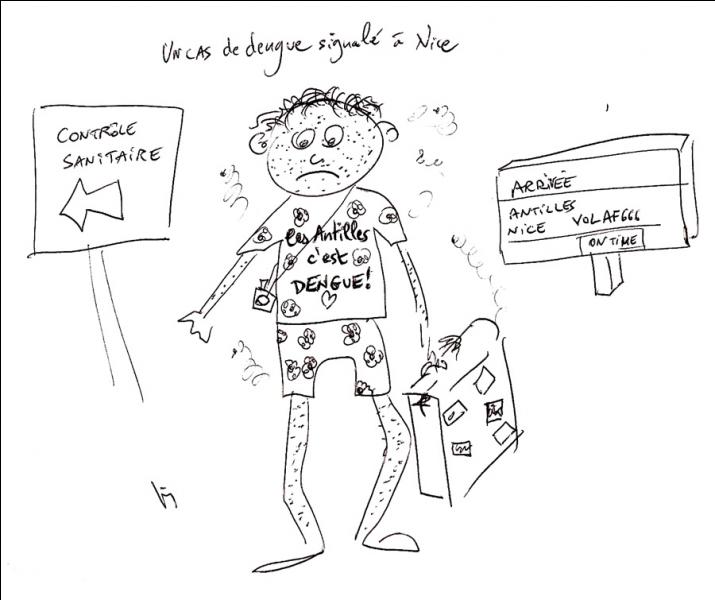 Un cas de dengue signalé à Nice
CONTRÔLE
SANITAIRE
ARRIVÉE
ANTILLES
NICE VOL AF666
ON TIME
les Antilles
c'est
DENGUE!